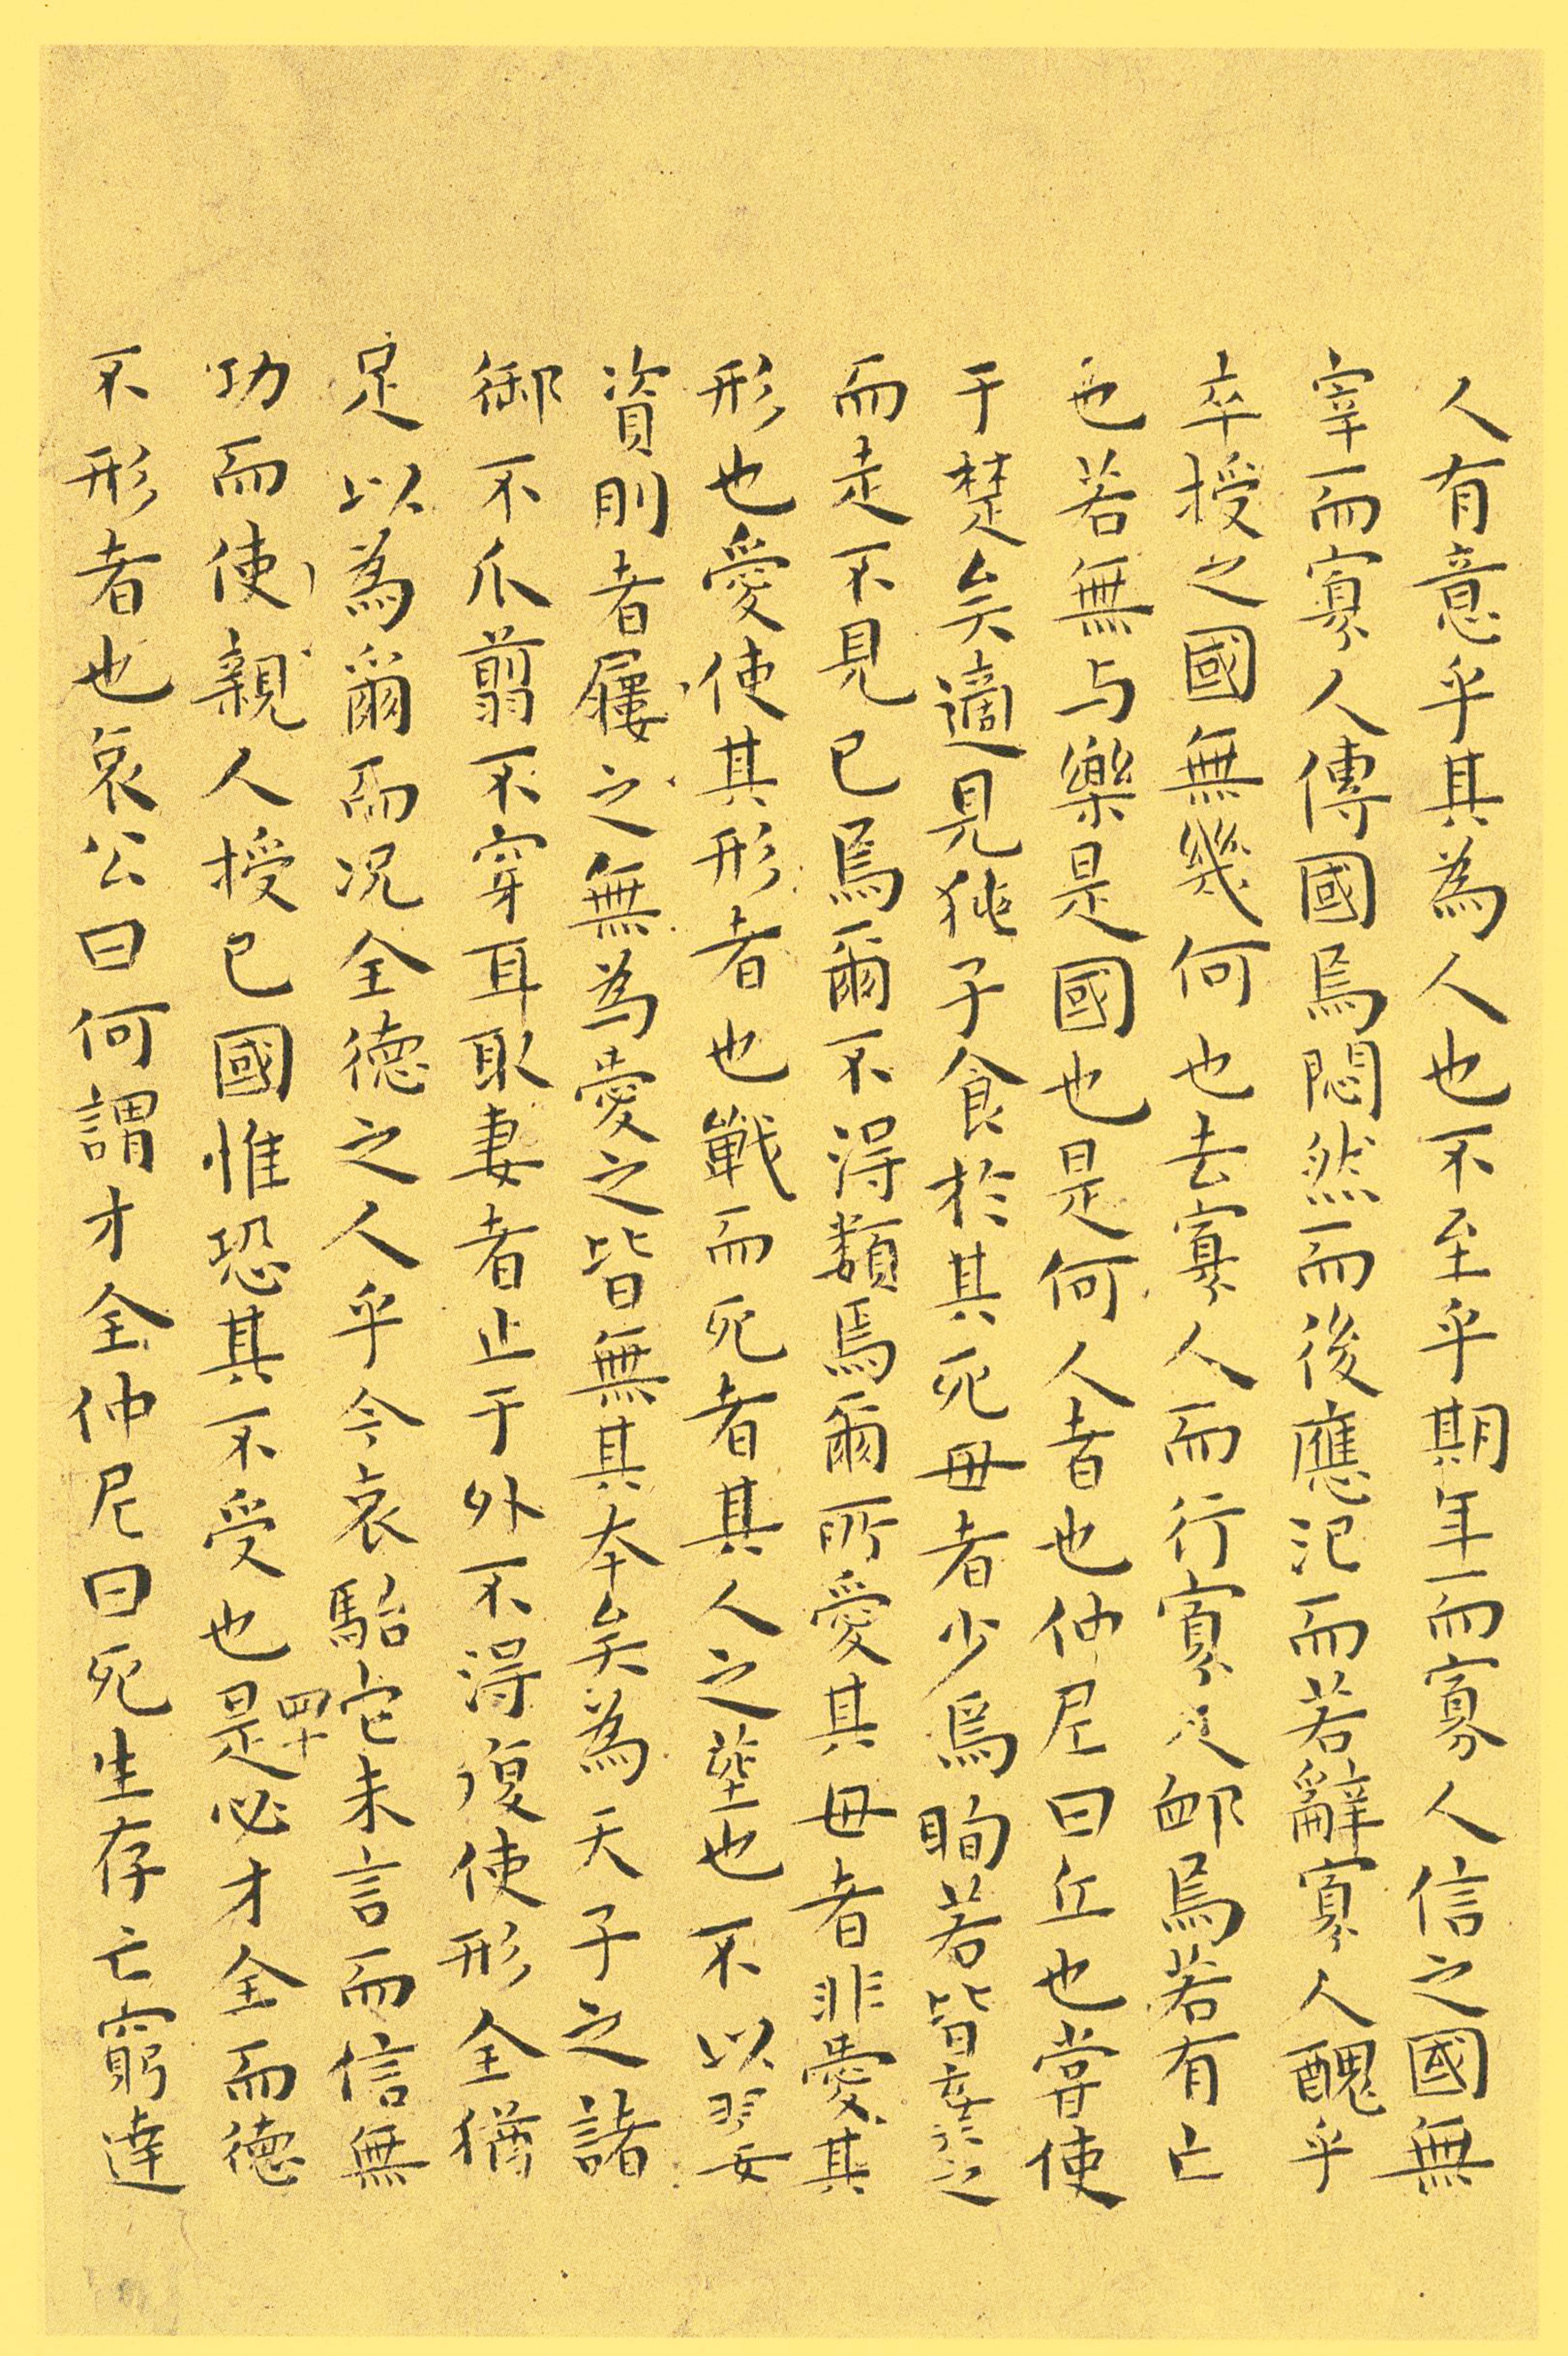 人有意乎其為人也不至乎期年而寡人信之國無
宰而寡人傳國焉悶然而後應氾而若辭寡人醜乎
卒授之國無幾何也去寡人而行寡人卹焉若有亡
也若無与樂是國也是何人者也仲尼曰丘也嘗使
于楚矣適見㹠子食於其死母者少焉眴若皆棄之
而走不見已焉爾不得類焉爾所愛其母者非愛其
形也愛使其形者也戰而死者其人之塟也不以翣
資刖者屨之無為愛之皆無其本矣為天子之諸
御不爪翦不穿耳取妻者止于外不得復使形全猶
足以為爾而况全德之人乎今哀駘它未言而信無
四十
功而使親人授己國惟恐其不受也是必才全而德
不形者也哀公曰何謂才全仲尼曰死生存亡窮達